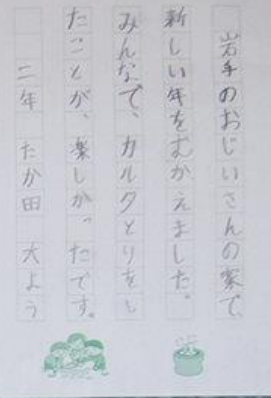 岩手のおじいさんの家で、
新しい年をむかえました。
みんなで、カルタとりをし
たことが、楽しかったです。
二年 たか田 大よう